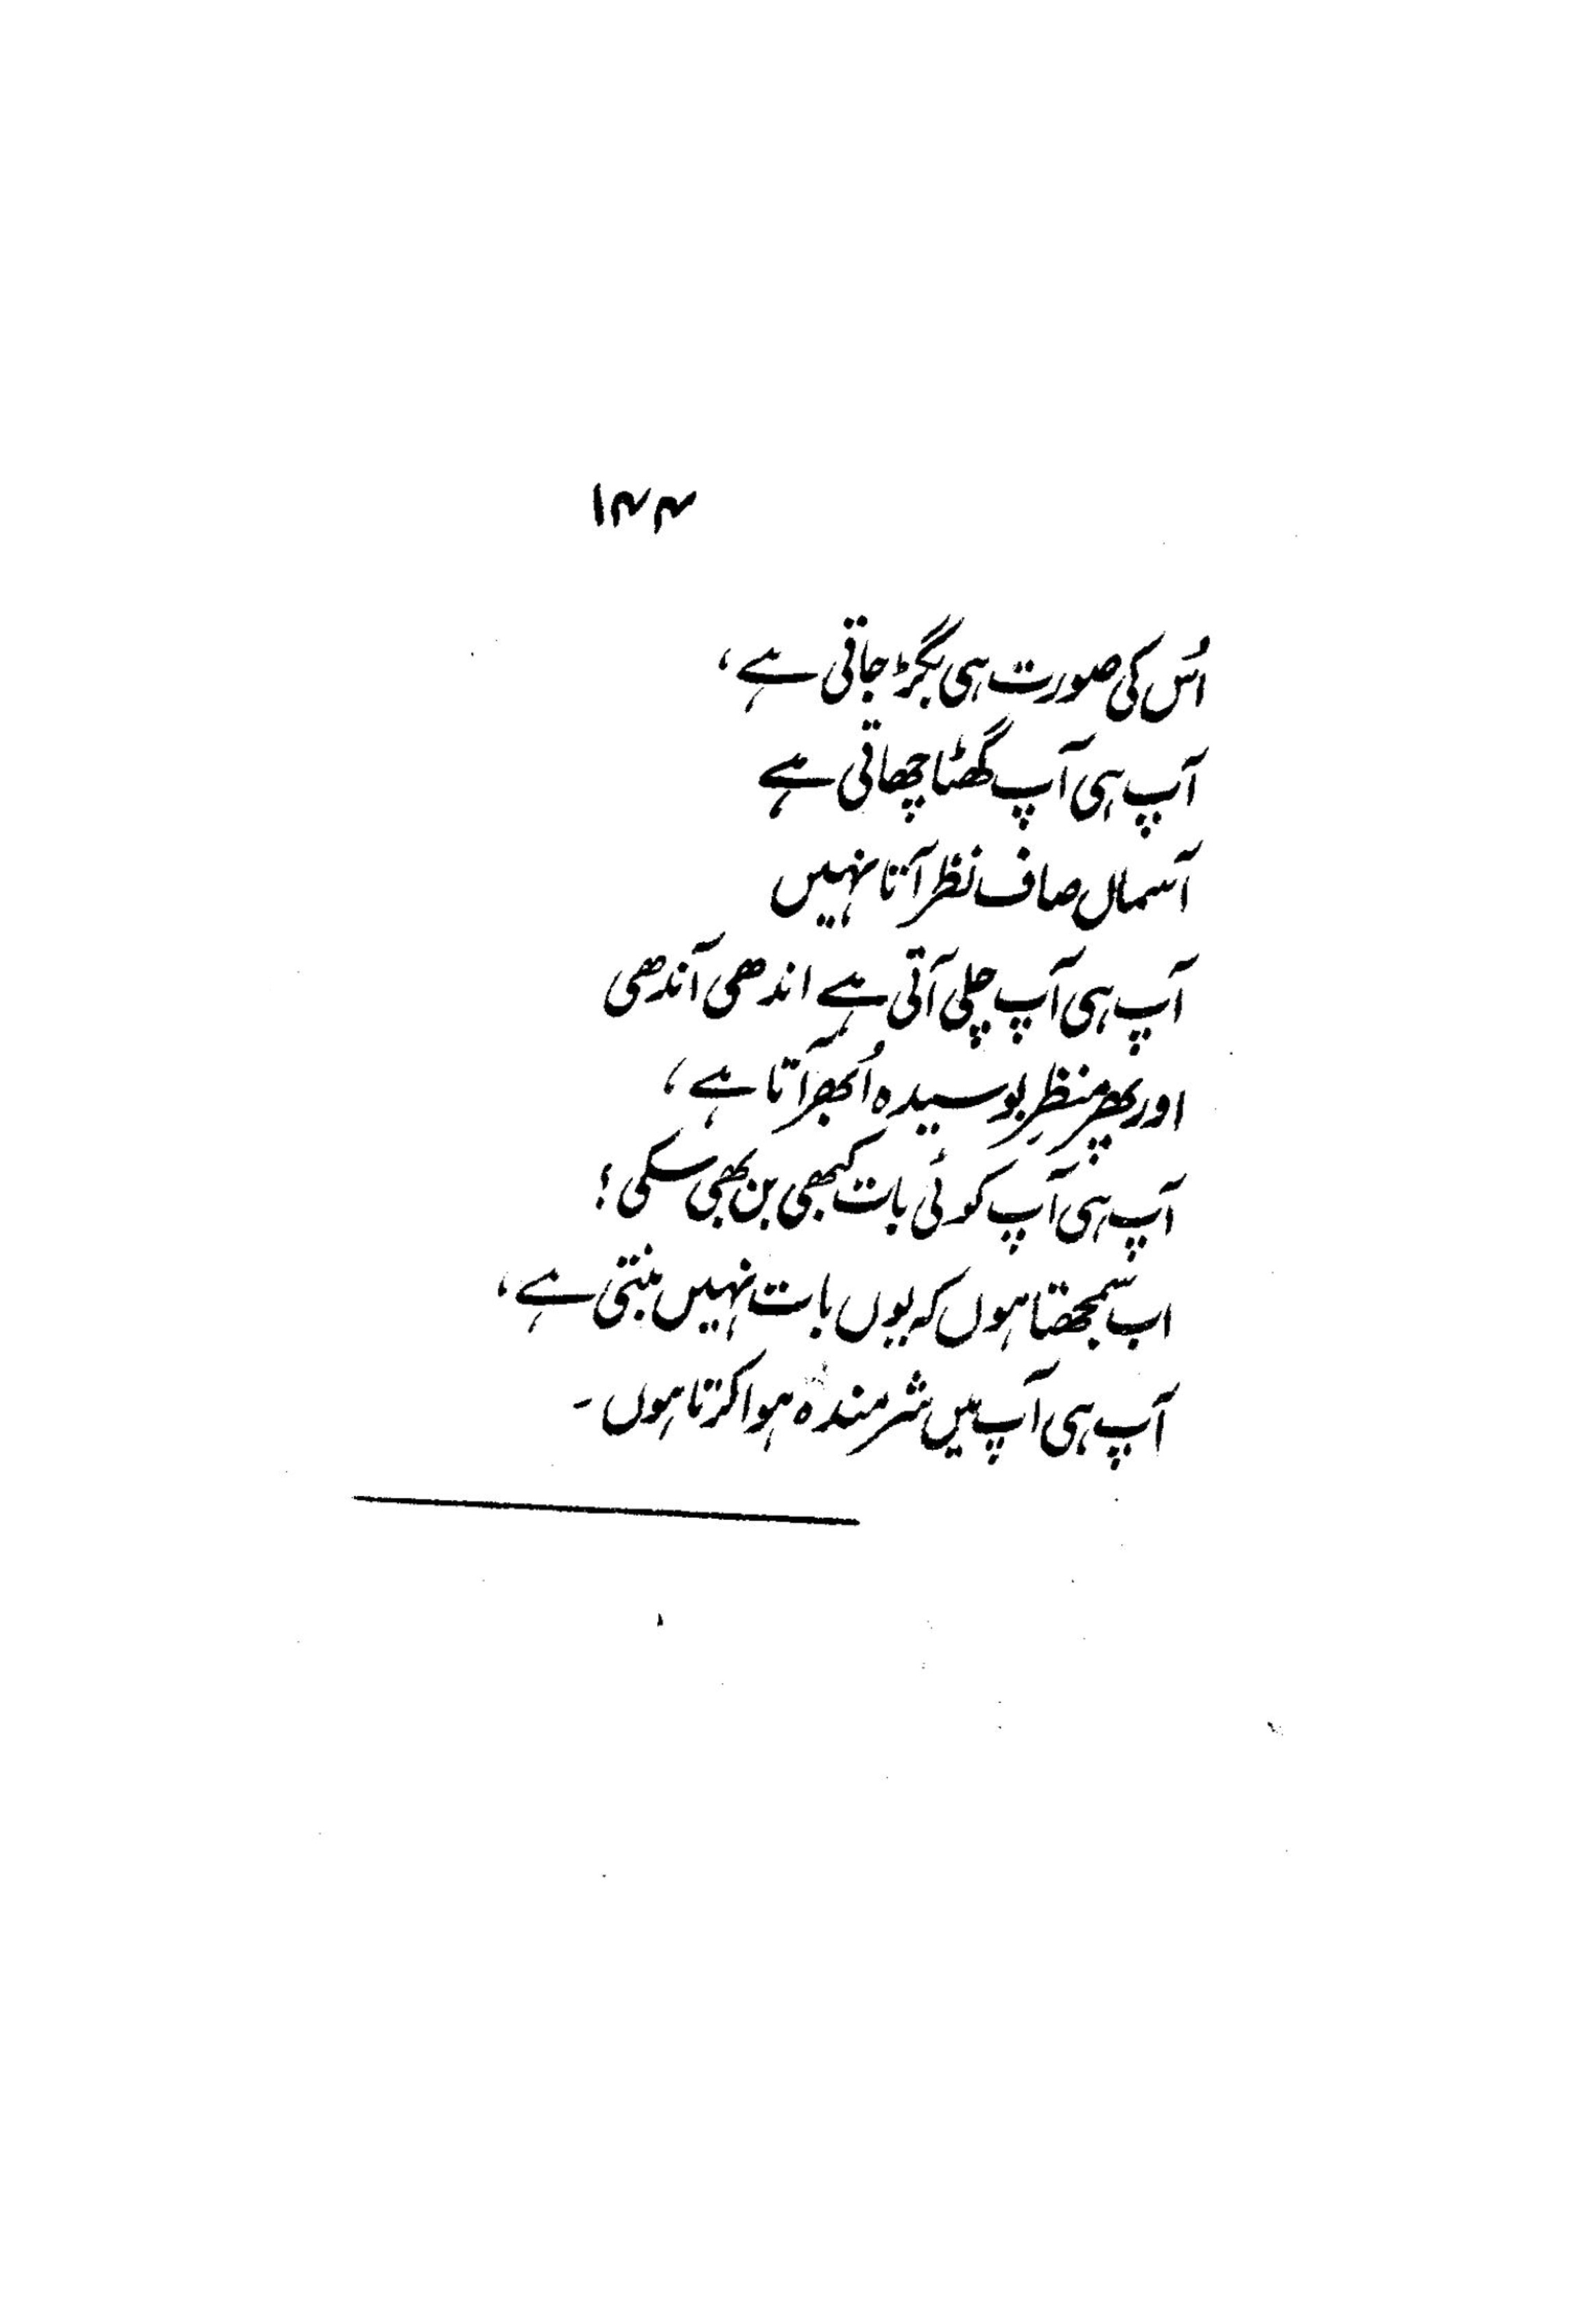 ۱۴۴
اُس کی صورت ہی بگڑ جاتی ہے،
آپ ہی آپ گھٹا چھاتی ہے
آسماں صاف نظر آتا نہیں
آپ ہی آپ چلی آتی ہے اندھی آندھی
اور پھر منظرِ بوسیدہ اُبھر آتا ہے،
آپ ہی آپ کوئی بات کبھی بن بھی سکی؟
اب سمجھتا ہوں کہ یوں بات نہیں بنتی ہے،
آپ ہی آپ میں شرمندہ ہوا کرتا ہوں۔